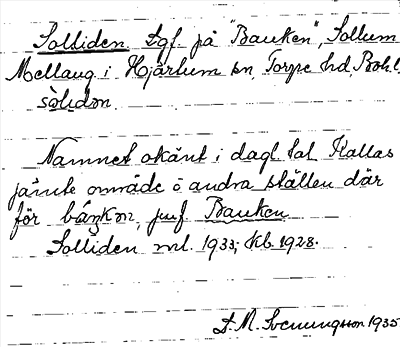 Solliden. Lgf. på "Banken", Sollum
Mellaug. i Hjärtum sn Torpe hd Bohl.
sòlidən.
Namnet okänt i dagl. tal. Kallas
jämte område o andra ställen där
för bánkən, jmf. Banken
Solliden ml. 1933; kb. 1928.
D. M. Svenungsson 1935